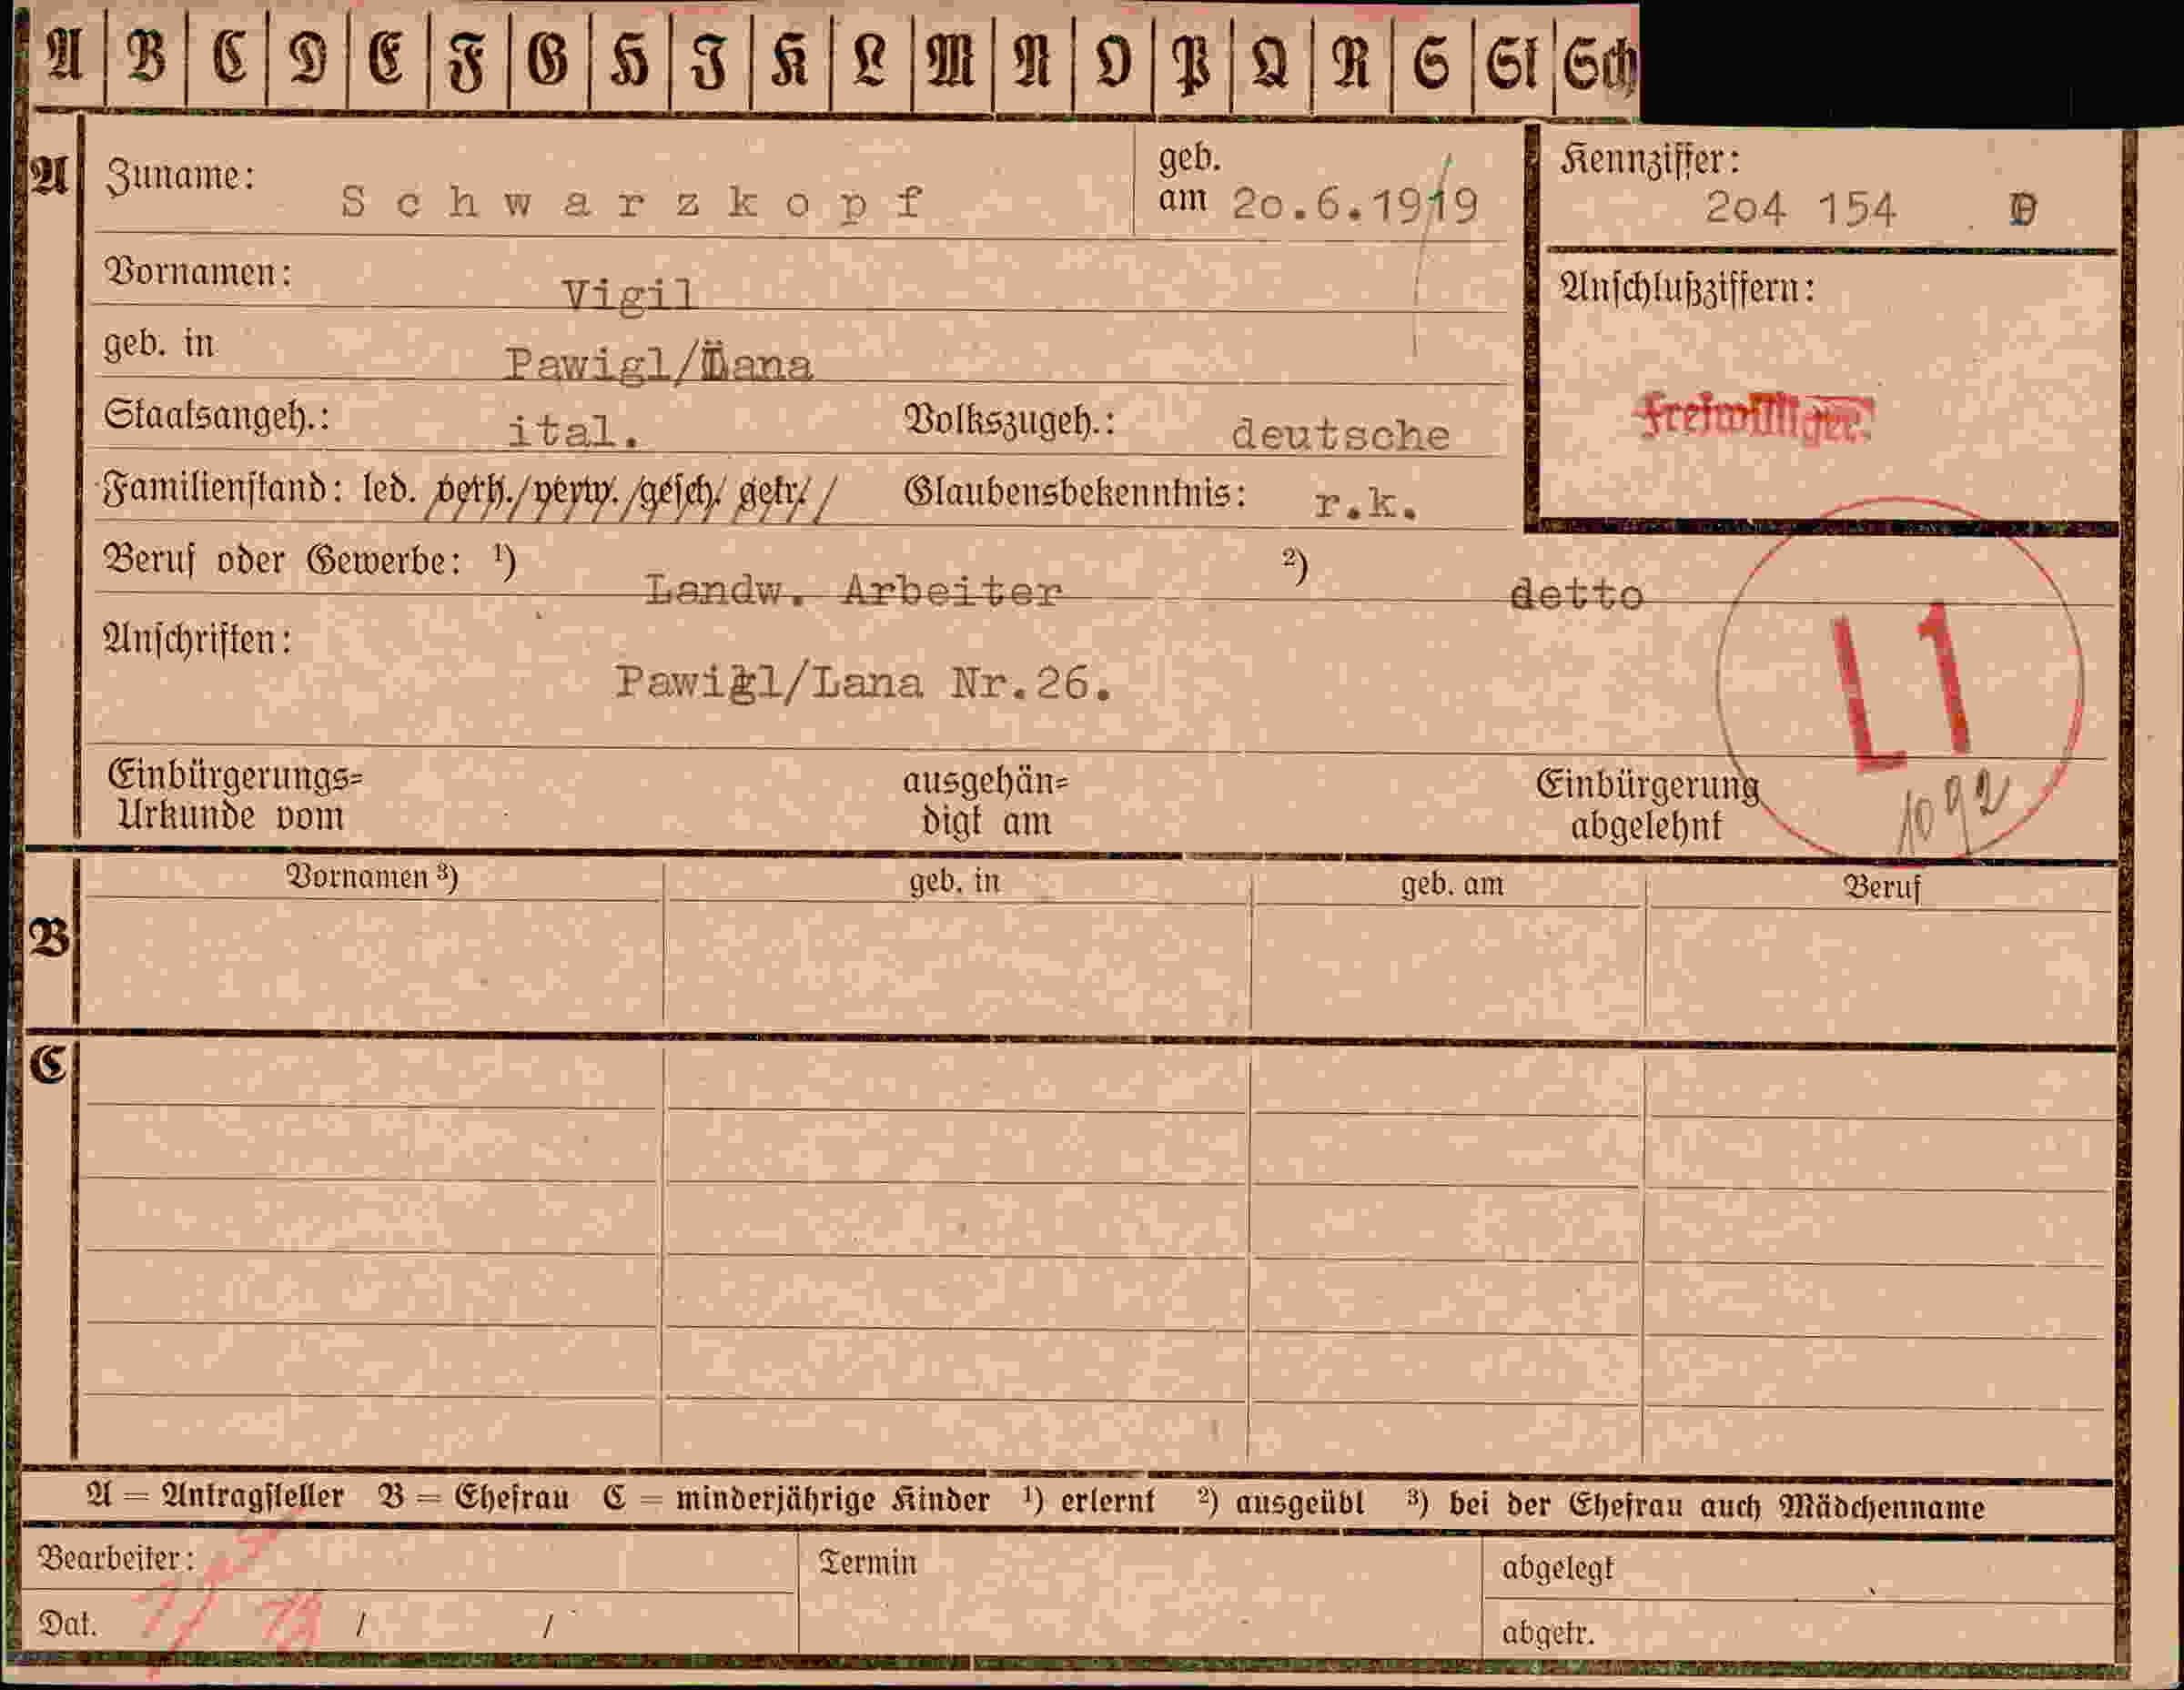 A B C D E F G H I K L M N O P Q R S St Sch
A Zuname: Schwarzkopf geb. am 20.6.1919 Kennziffer: 204 154 D
Vornamen: Vigil
Anschlußziffern:
geb. in Pawigl/Lana
Freiwilliger.
Staatsangeh.: ital. Volkszugeh.: deutsche
Familienstand: led. verh./verw./gesch./getr./ Glaubensbekenntnis: r.k.
Beruf oder Gewerbe: ¹) Landw. Arbeiter ²) detto
Anschriften: Pawigl/Lana Nr.26.
L 1
1092
Einbürgerungs=
Urkunde vom
ausgehän=
digt am
Einbürgerung
abgelehnt
B Vornamen ³) geb. in geb. am Beruf
C
A = Antragsteller B = Ehefrau C = minderjährige Kinder ¹) erlernt ²) ausgeübt ³) bei der Ehefrau auch Mädchenname
Bearbeiter: Termin abgelegt
Dat. / / abgetr.